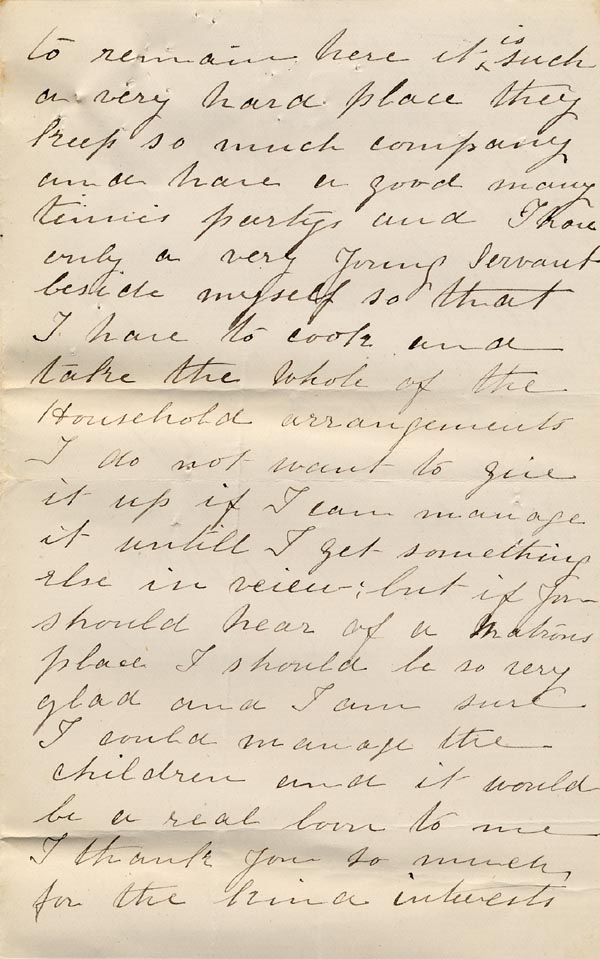 to remain here it is such
a very hard place they
keep so much company
and have a good many
tennis partys and I have
only a very Young Servant
beside myself so that
I have to cook and
take the Whole of the
Household arrangements
I do not want to give
it up if I can manage
it untill I get something
else in veiew; but if You
should hear of a Matrons
place I should be so very
glad and I am sure
I could manage the
children and it would
be a real boon to me
I thank You so much
for the kind interests